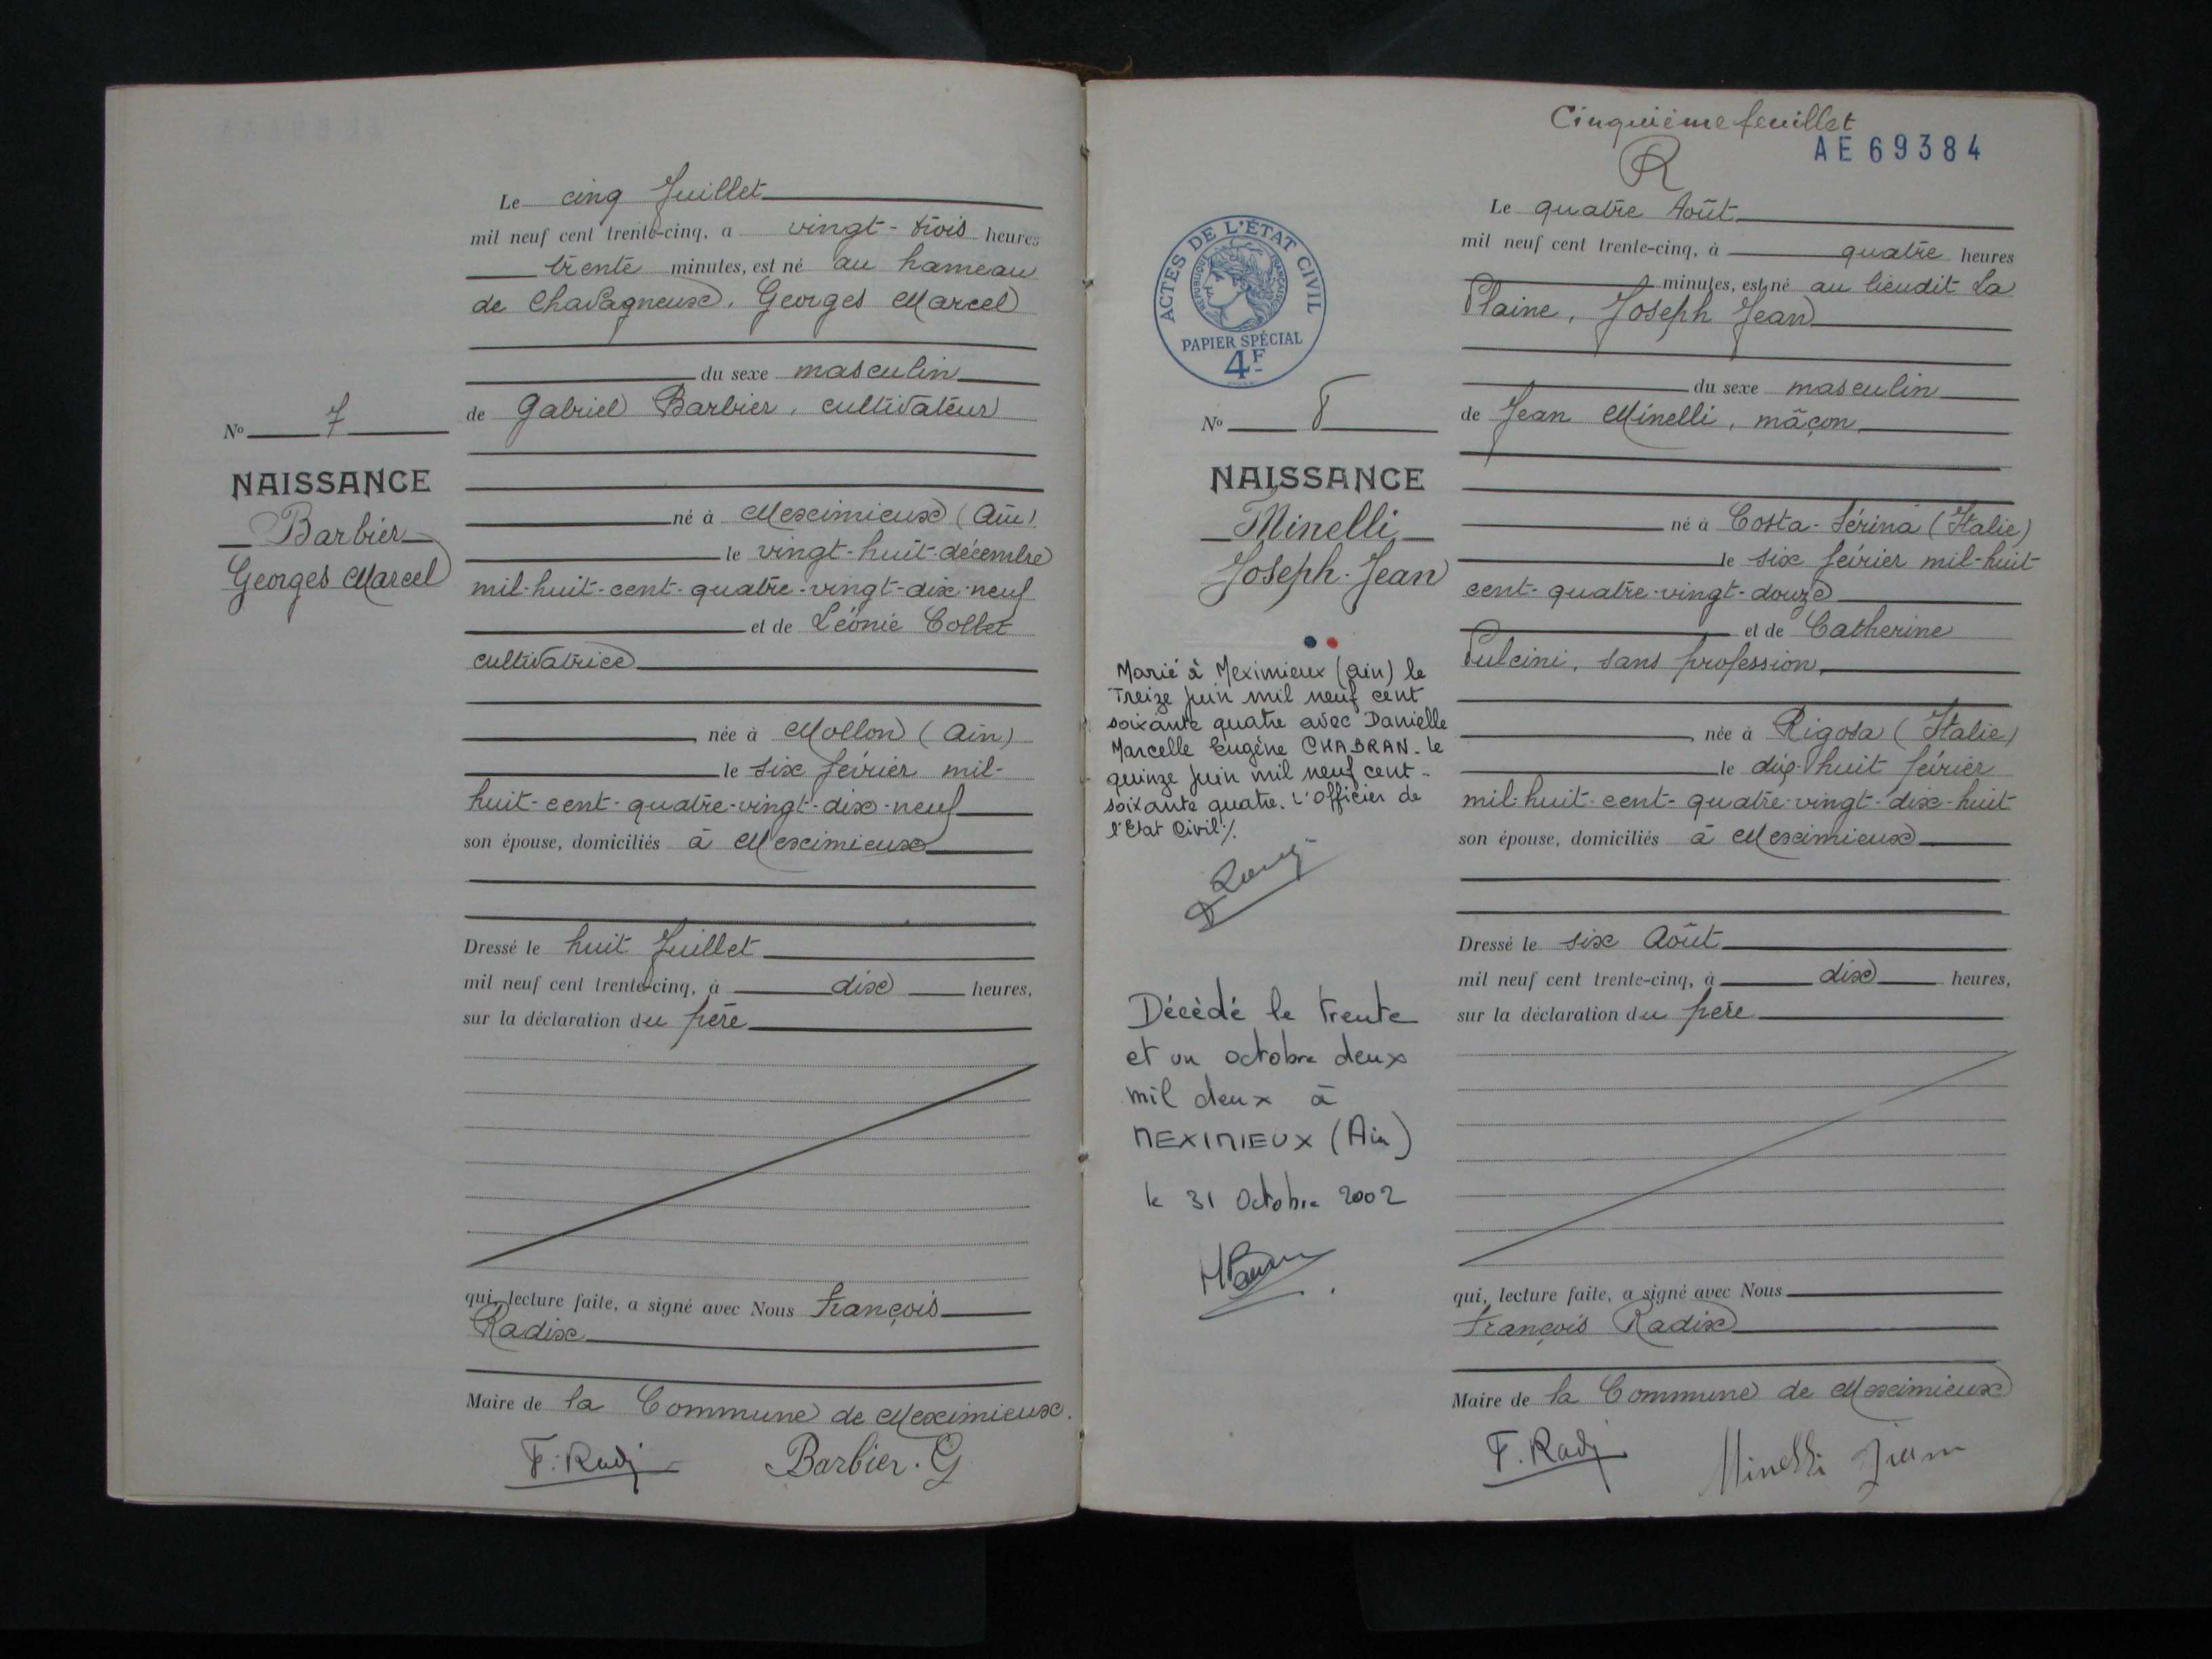 Le cinq Juillet
mil neuf cent trente-cinq, à vingt-trois heures
trente minutes, est né au hameau
de Chavagneux, Georges Marcel
du sexe masculin
de Gabriel Barbier, cultivateur
né à Meximieux (Ain)
le vingt-huit-décembre
mil-huit-cent-quatre-vingt-dix-neuf
et de Léonie Collet
cultivatrice
née à Mollon (Ain)
le six février mil-
huit-cent-quatre-vingt-dix-neuf
son épouse, domiciliés à Meximieux
Dressé le huit Juillet
mil neuf cent trente-cinq, à dix heures,
sur la déclaration du père
qui, lecture faite, a signé avec Nous François
Radix
Maire de la Commune de Meximieux.
F. Radix Barbier. G
No 7
NAISSANCE
Barbier
Georges Marcel
Cinquième feuillet
R
AE 69384
ACTES DE L'ÉTAT CIVIL
RÉPUBLIQUE FRANÇAISE
PAPIER SPÉCIAL
4F
No 8
NAISSANCE
Minelli
Joseph-Jean
Marié à Meximieux (Ain) le
Treize juin mil neuf cent
soixante quatre avec Danielle
Marcelle Eugène CHABRAN. Le
quinze juin mil neuf cent-
soixante quatre. L'Officier de
l'Etat Civil ./.
Décédé le trente
et un octobre deux
mil deux à
MEXIMIEUX (Ain)
le 31 Octobre 2002
Le quatre Août
mil neuf cent trente-cinq, à quatre heures
minutes, est né au lieudit La
Plaine, Joseph Jean
du sexe masculin
de Jean Minelli, mâçon
né à Costa-Sérina (Italie)
le six février mil-huit-
cent-quatre-vingt-douze
et de Catherine
Pulcini, sans profession,
née à Rigosa (Italie)
le dix-huit février
mil-huit-cent-quatre-vingt-dix-huit
son épouse, domiciliés à Meximieux
Dressé le six Août
mil neuf cent trente-cinq, à dix heures,
sur la déclaration du père
qui, lecture faite, a signé avec Nous
François Radix
Maire de la Commune de Meximieux
F. Radix Minelli Jean